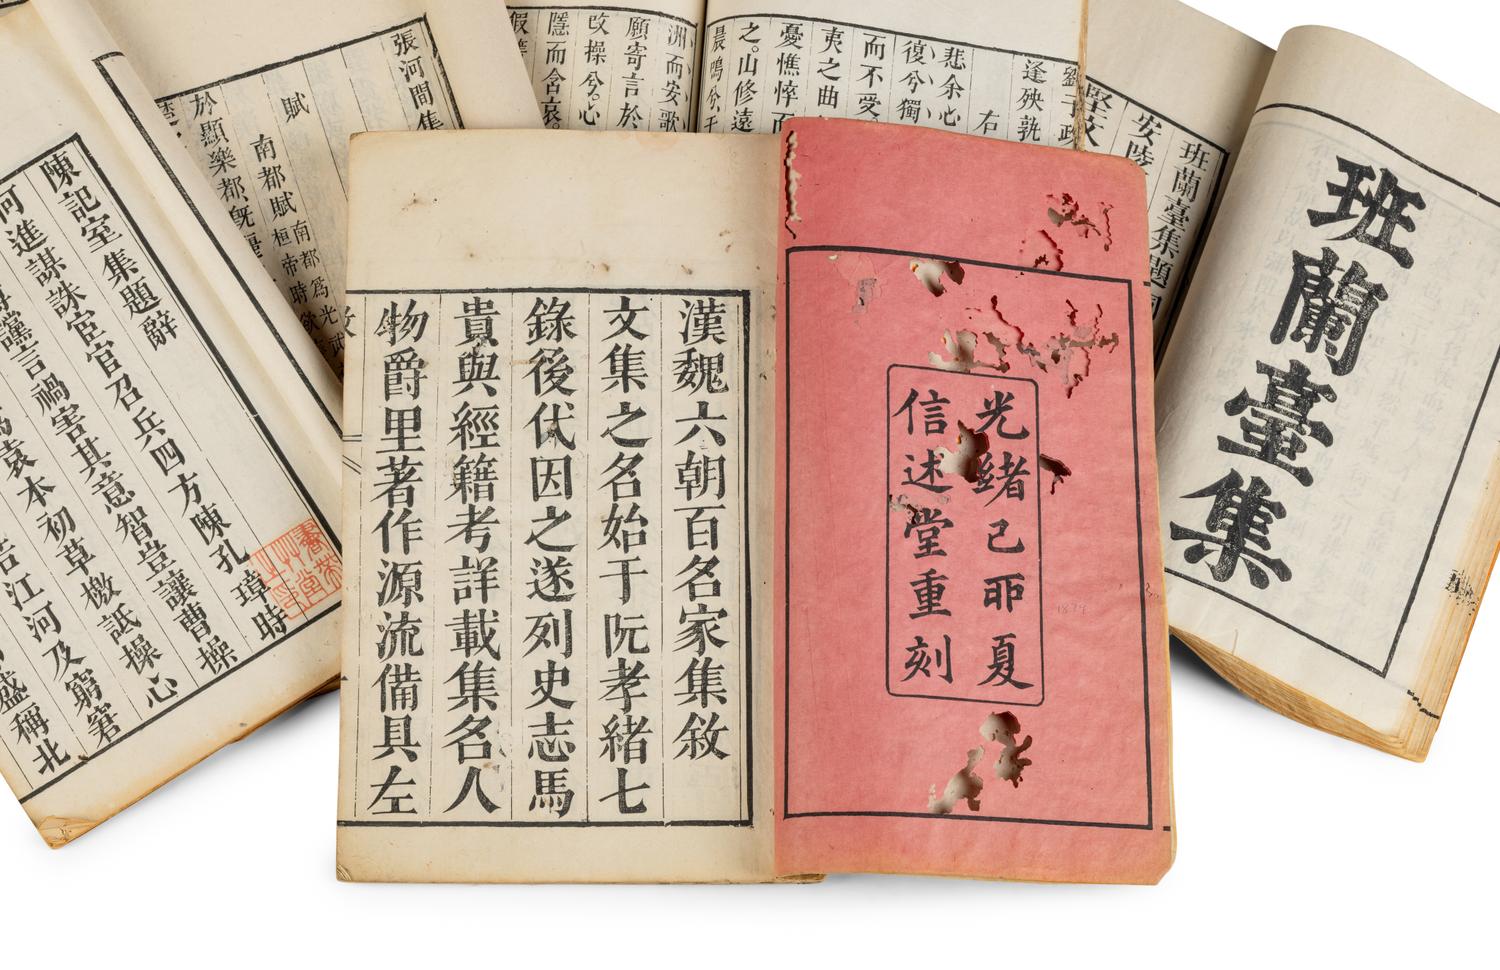 漢魏六朝百名家集敘
文集之名始于阮孝緒七
錄後代因之遂列史志馬
貴與經籍考詳載集名人
物爵里著作源流備具左
光緒己丣夏
信述堂重刻
1879
班蘭臺集
班蘭臺集題詞
安陵
劉子政
逢殃孰
右
悲余心
復兮獨
而不受
夷之曲
憂憔悴而
之。山修遠
晨鳴兮于
洲而安歌
願寄言於
改操兮。心
隱而含哀。
張河間集
賦
南都賦 南都爲光武
桓帝時欲
於顯樂都。旣麗
陳記室集題辭
何進謀誅宦官召兵四方陳孔璋時
讜言禍害其意智豈讓曹操
爲袁本初草檄詆操心
江河及窮窘
盛稱北